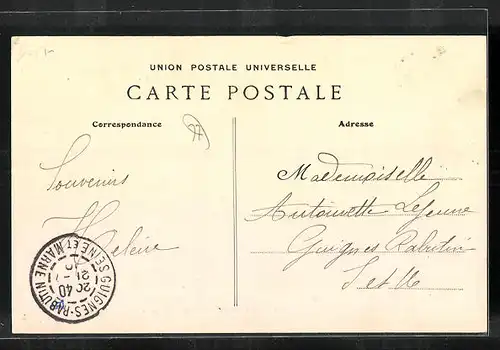 UNION POSTALE UNIVERSELLE
CARTE POSTALE
Correspondance
Adresse
Souvenirs
Helène
Mademoiselle
Antoinette Lejeune
Guignes Rabutin
S et M
GUIGNES-RABUTIN
SEINE ET MARNE
20 40
21